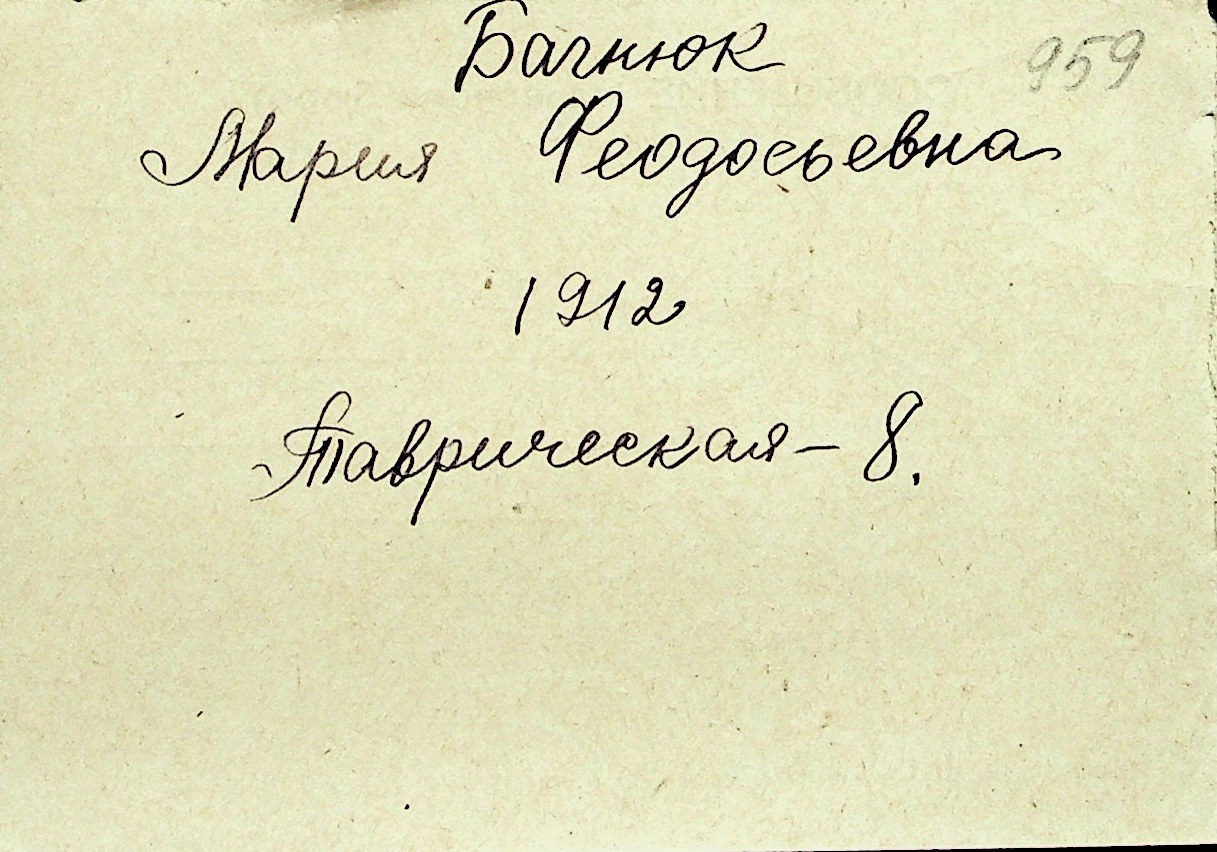 Багнюк 959
Мария Феодосьевна
1912
Таврическая – 8.